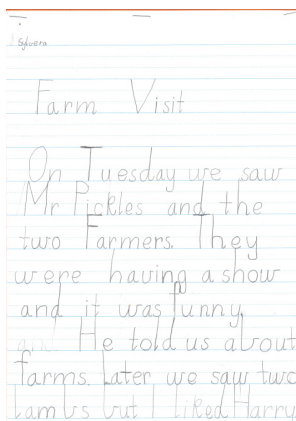 Farm Visit
On Tuesday we saw
Mr Pickles and the
two Farmers. They
were having a show
and it was funny.
and He told us about
farms. Later we saw two
lambs but I liked Harry